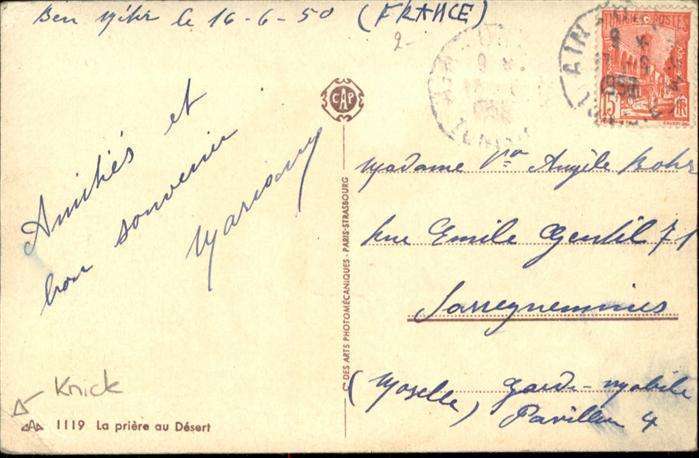 le 16-6-50 (FRANCE)
2-
AIN
9
1950
TUNISIE POSTES
15F
CAP
Amitiés et
bon souvenir
Mariany
Madame Vve Angèle Bohr
Rue Emile Gentil 71
Sarreguemines
(Moselle) Garde-mobile
Pavillon 4
Cie DES ARTS PHOTOMÉCANIQUES - PARIS-STRASBOURG
Knick
1119 La prière au Désert